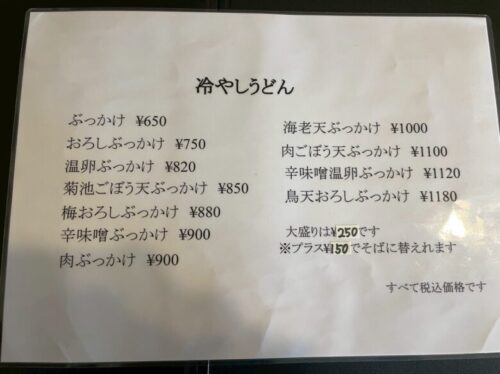 冷やしうどん
ぶっかけ ¥650
おろしぶっかけ ¥750
温卵ぶっかけ ¥820
菊池ごぼう天ぶっかけ ¥850
梅おろしぶっかけ ¥880
辛味噌ぶっかけ ¥900
肉ぶっかけ ¥900
海老天ぶっかけ ¥1000
肉ごぼう天ぶっかけ ¥1100
辛味噌温卵ぶっかけ ¥1120
鳥天おろしぶっかけ ¥1180
大盛りは¥250です
※プラス¥150でそばに替えれます
すべて税込価格です